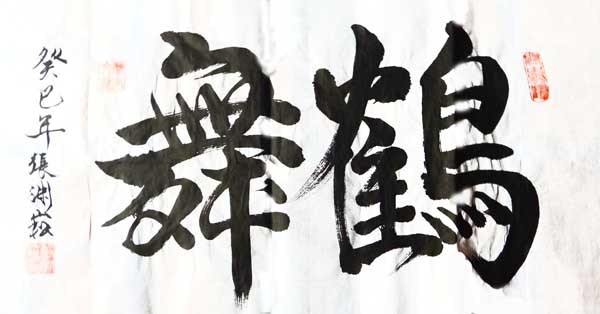 鶴舞
癸巳年張渊